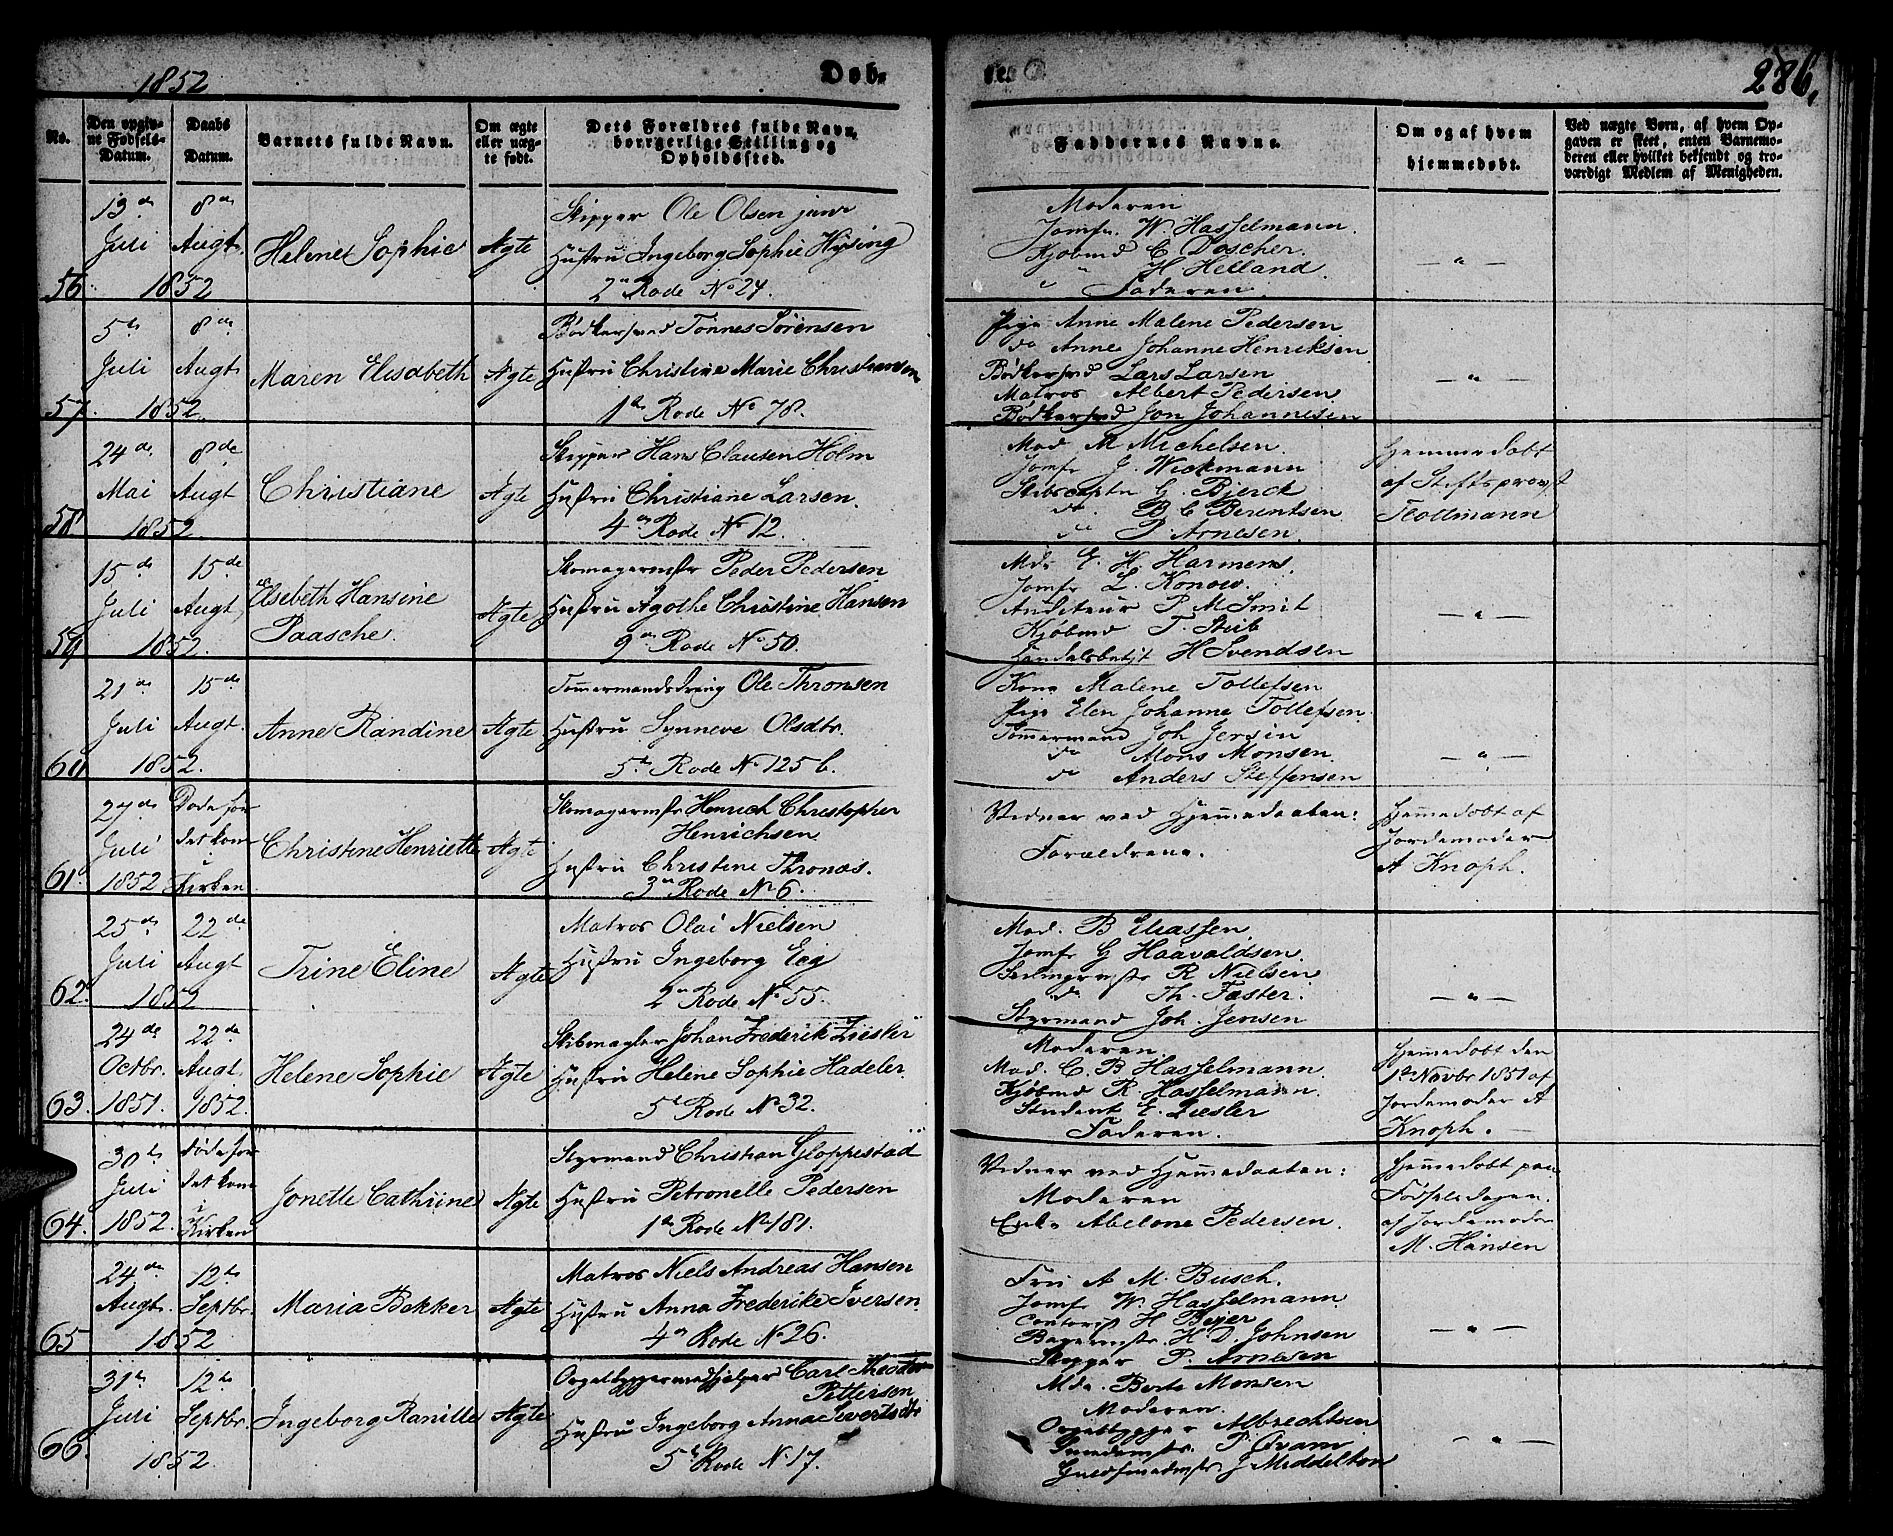 1852
Døb-
286,
No.
Den opgivne Fødsels-Datum.
Daabs Datum.
Barnets fulde Navn.
Om ægte eller uægte født.
Dets Forældres fulde Navn, borgerlige Stilling og Opholdssted.
Faddernes Navne.
Om og af hvem hjemmedøbt.
Ved uægte Børn, af hvem Opgaven er skeet, enten Barnemoderen eller hvilket bekjendt og troværdigt Medlem af Menigheden.
56.
13de Juli 1852
8de Augt.
Helene Sophie
Ægte
Skipper Ole Olsen junr
Hustru Ingeborg Sophie Hysing
2n Rode No 24.
Moderen
Jomfr. W. Hasselmann.
Kjøbmd C Doscher.
" H Helland.
Faderen.
— " —
57.
5te Juli 1852.
8de Augt.
Maren Elisabeth
Ægte
Bødkersvd Tønnes Sørensen
Hustru Christine Marie Christiansen
1te Rode No 78.
Pige Anne Malene Pedersen
do Anne Johanne Henriksen
Bødkersvd Lars Larsen
Matros Albert Pedersen
Bødkersvd Jon Johannesen
— " —
58
24de Mai 1852.
8de Augt
Christiane
Ægte
Skipper Hans Clausen Holm
Hustru Christiane Larsen.
4de Rode No 12.
Mad M Michelsen.
Jomfr J. Wickmann
Skibscaptn G. Bjerck
do. B C Berentsen
do P. Arnesen.
Hjemmedøbt
af Stiftsprovst
59
15de Juli 1852.
15de Augt,
Elsebeth Hansine
Paasche.
Ægte
Skomagermstr Peder Pedersen
Hustru Agothe Christine Hansen
9de Rode No 50.
Md. E. H. Harmens.
Jomfr L. Konow.
Auditeur P. M Smit
Kjøbmd T. Stub
Handelsbetjt H Svendsen
— " —
60
21de Juli 1852.
15de Augt.
Anne Randine
Ægte
Tømmermandsdreng Ole Thronsen
Hustru Synneve Olsdtr.
5te Rode No 125 b.
Kone Malene Tollefsen
Pige Elen Johanne Tollefsen.
Tømmermand Joh Jersin
do Mons Monsen.
do Anders Steffensen
— " —
61.
27de Juli 1852
Døde før
det kom
i
Kirken
Christine Henriette
Ægte
Skomagermstr Henrich Christopher
Henrichsen
Hustru Christine Thronæs.
3de Rode No 6.
Vidner ved Hjemmedaaben:
Forældrene.
Hjemmedøbt af
Jordemoder
A Knoph.
62.
25de Juli 1852
22de Augt
Trine Eline
Ægte
Matros Olai Nielsen
Hustru Ingeborg Eeg
2n Rode No 55.
Mad. B Eliassen.
Jomfr G Haavaldsen.
R Nielsen
do Th. Faster.
Styrmand Joh. Jensen
— " —
63.
24de Octbr. 1851.
22de Augt. 1852.
Helene Sophie
Ægte
Skibmægler Johan Frederik Ziesler
Hustru Helene Sophie Hadeler.
5te Rode No 32.
Moderen.
Mad. C. B Hasselmann.
Kjøbmd R. Hasselmann.
Student E. Ziesler
Faderen.
Hjemmedøbt den
1te Novbr 1851 af
Jordemoder A
Knoph.
64.
30te Juli 1852.
Døde før
det kom
i
Kirken
Jonette Cathrine
Ægte
Styrmand Christian Gloppestad
Hustru Petronelle Pedersen
1te Rode No 181.
Vidner ved Hjemmedaaben:
Moderen
Enke Abelone Pedersen.
Hjemmedøbt paa
Fødselsdagen.
af Jordemoder
M. Hansen
65
24de Augt. 1852
12te Septbr.
Maria Bekker
Ægte
Matros Niels Andreas Hansen
Hustru Anna Frederike Iversen.
4de Rode No 26.
Fru A M. Busch.
Jomfr W. Hasselmann.
Contorist H Beyer
Bagermstr. H D. Johnsen
Skipper P. Arnesen
— " —
66.
31te Juli 1852.
12te Septbr.
Ingeborg Ranille
Ægte
Orgelbyggermedhjelper Carl Theodor
Pettersen
Hustru Ingeborg Anna Sivertsdtr
5te Rode No 17.
Md. Berte Monsen
Moderen.
Orgelbygger Albrechtsen
P. Qvam
Guldsmedmstr J Middelton
— " —